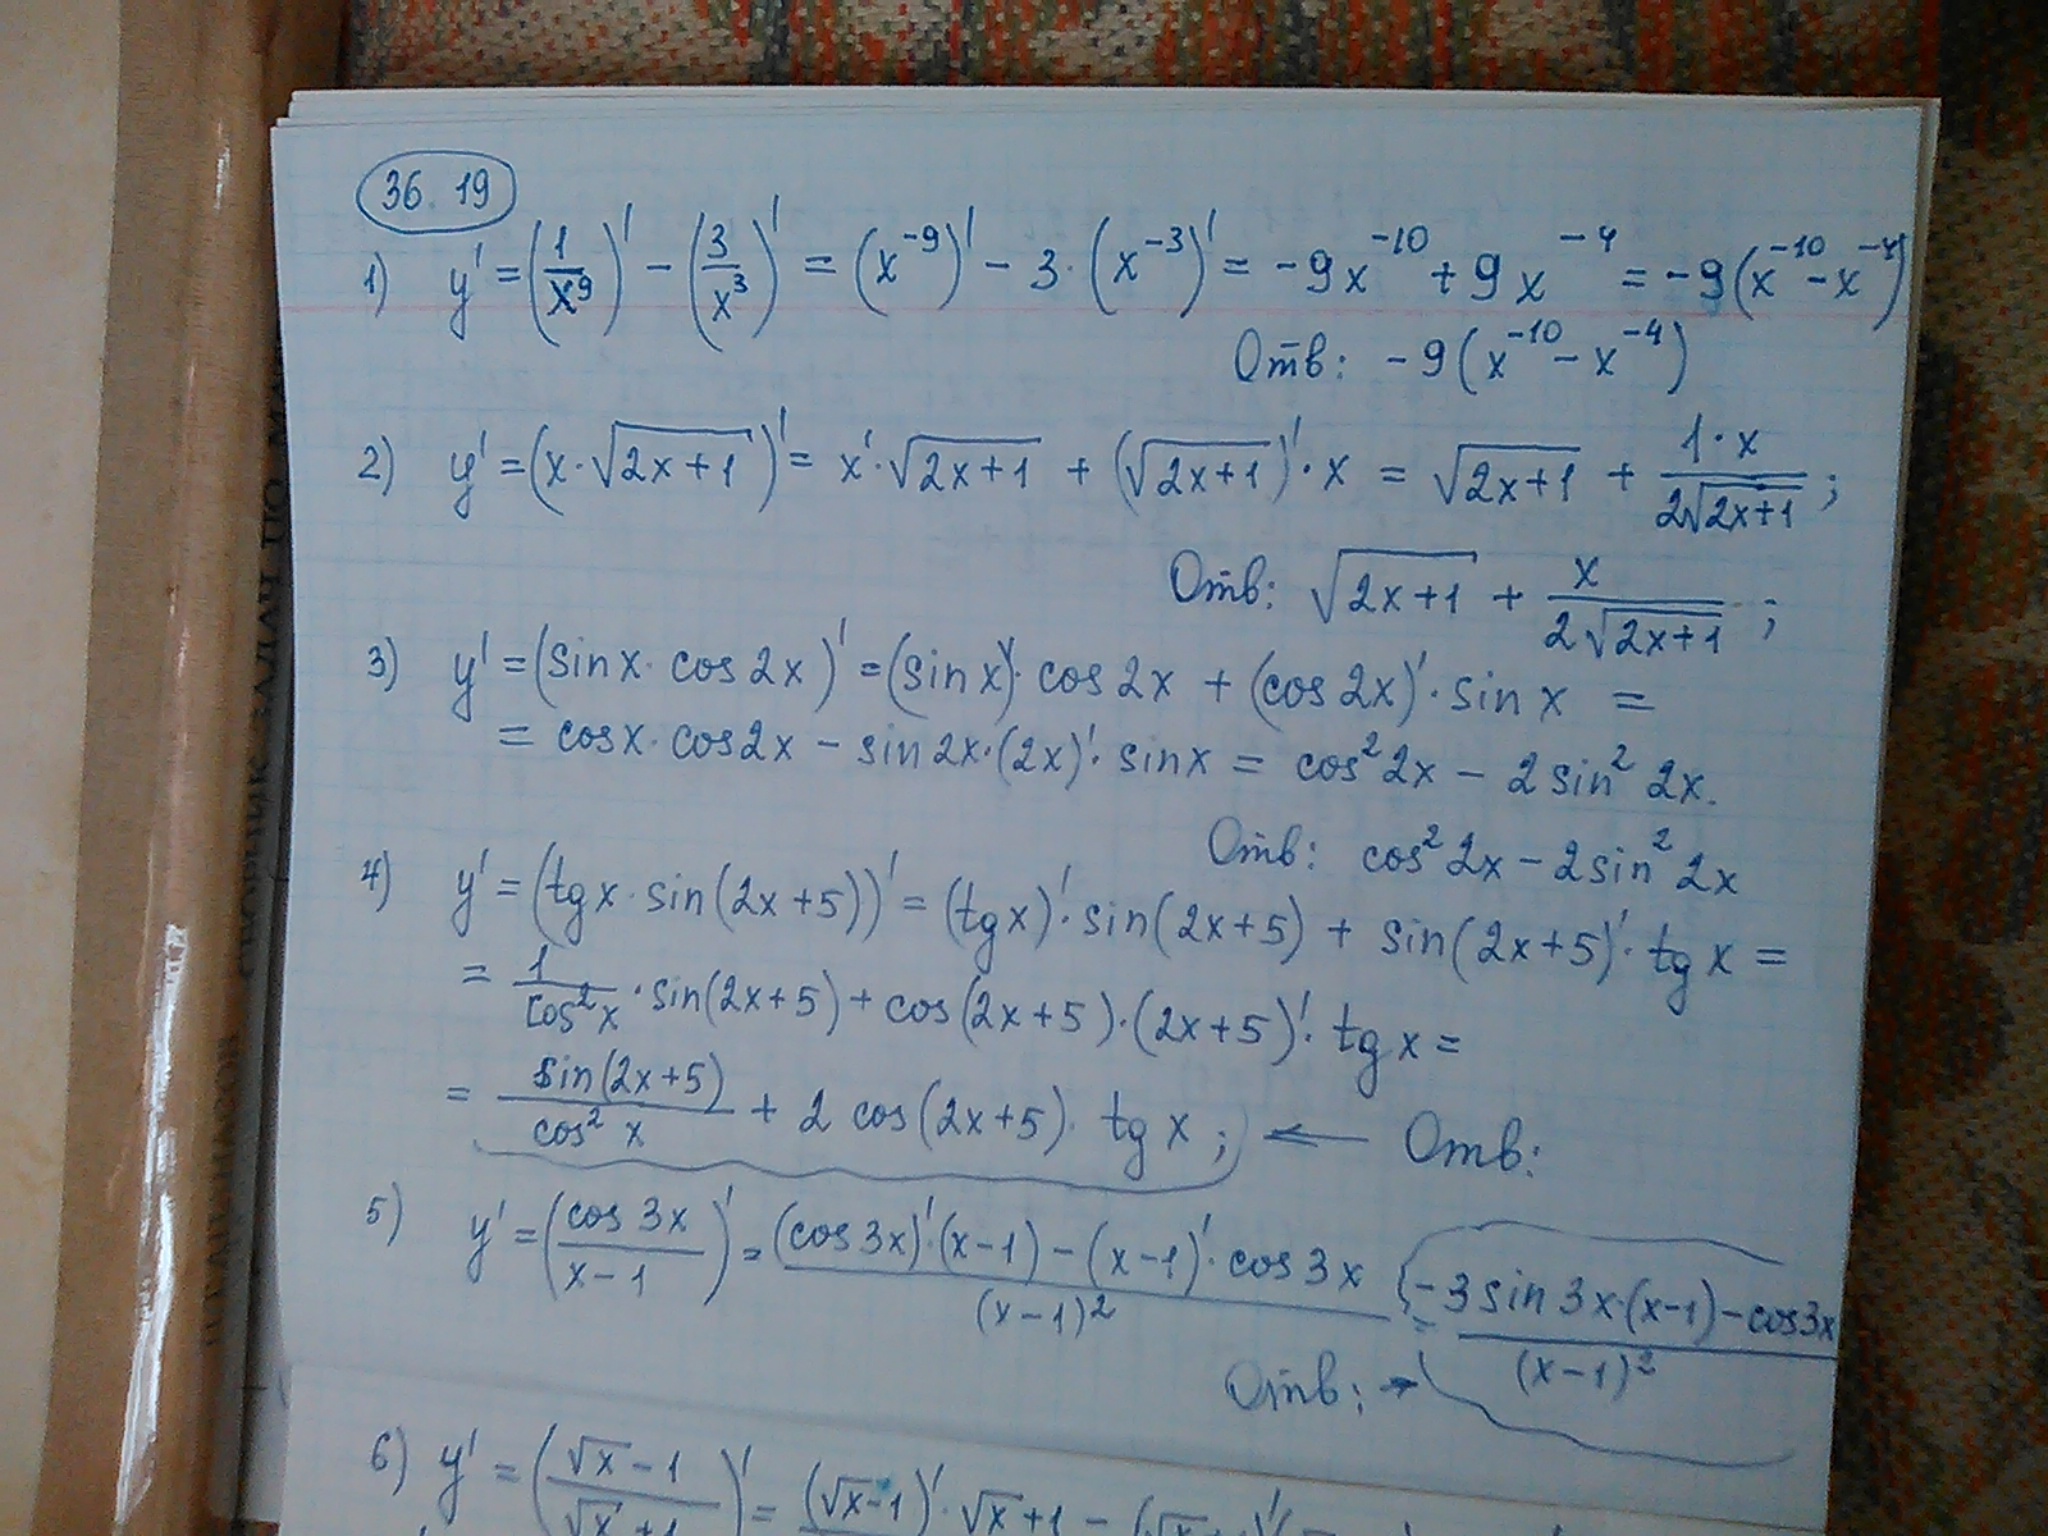 36.19
1) y' = (1/x⁹)' - (3/x³)' = (x⁻⁹)' - 3·(x⁻³)' = -9x⁻¹⁰ + 9x⁻⁴ = -9(x⁻¹⁰ - x⁻⁴)
Отв: -9(x⁻¹⁰ - x⁻⁴)
2) y' = (x·√(2x+1))' = x'·√(2x+1) + (√(2x+1))'·x = √(2x+1) + 1·x/(2√(2x+1));
Отв: √(2x+1) + x/(2√(2x+1));
3) y' = (sin x·cos 2x)' = (sin x)'·cos 2x + (cos 2x)'·sin x =
= cos x·cos 2x - sin 2x·(2x)'·sin x = cos² 2x - 2 sin² 2x.
Отв: cos² 2x - 2 sin² 2x
4) y' = (tg x·sin(2x+5))' = (tg x)'·sin(2x+5) + sin(2x+5)'·tg x =
= 1/cos² x·sin(2x+5) + cos(2x+5)·(2x+5)'·tg x =
= sin(2x+5)/cos² x + 2 cos(2x+5)·tg x; ← Отв:
5) y' = (cos 3x/(x-1))' = ((cos 3x)'·(x-1) - (x-1)'·cos 3x)/(x-1)² = (-3 sin 3x·(x-1) - cos 3x)/(x-1)²
Отв: →
6) y' = ((√x - 1)/(√x + 1))' = (√x - 1)'·√x + 1 - (√x